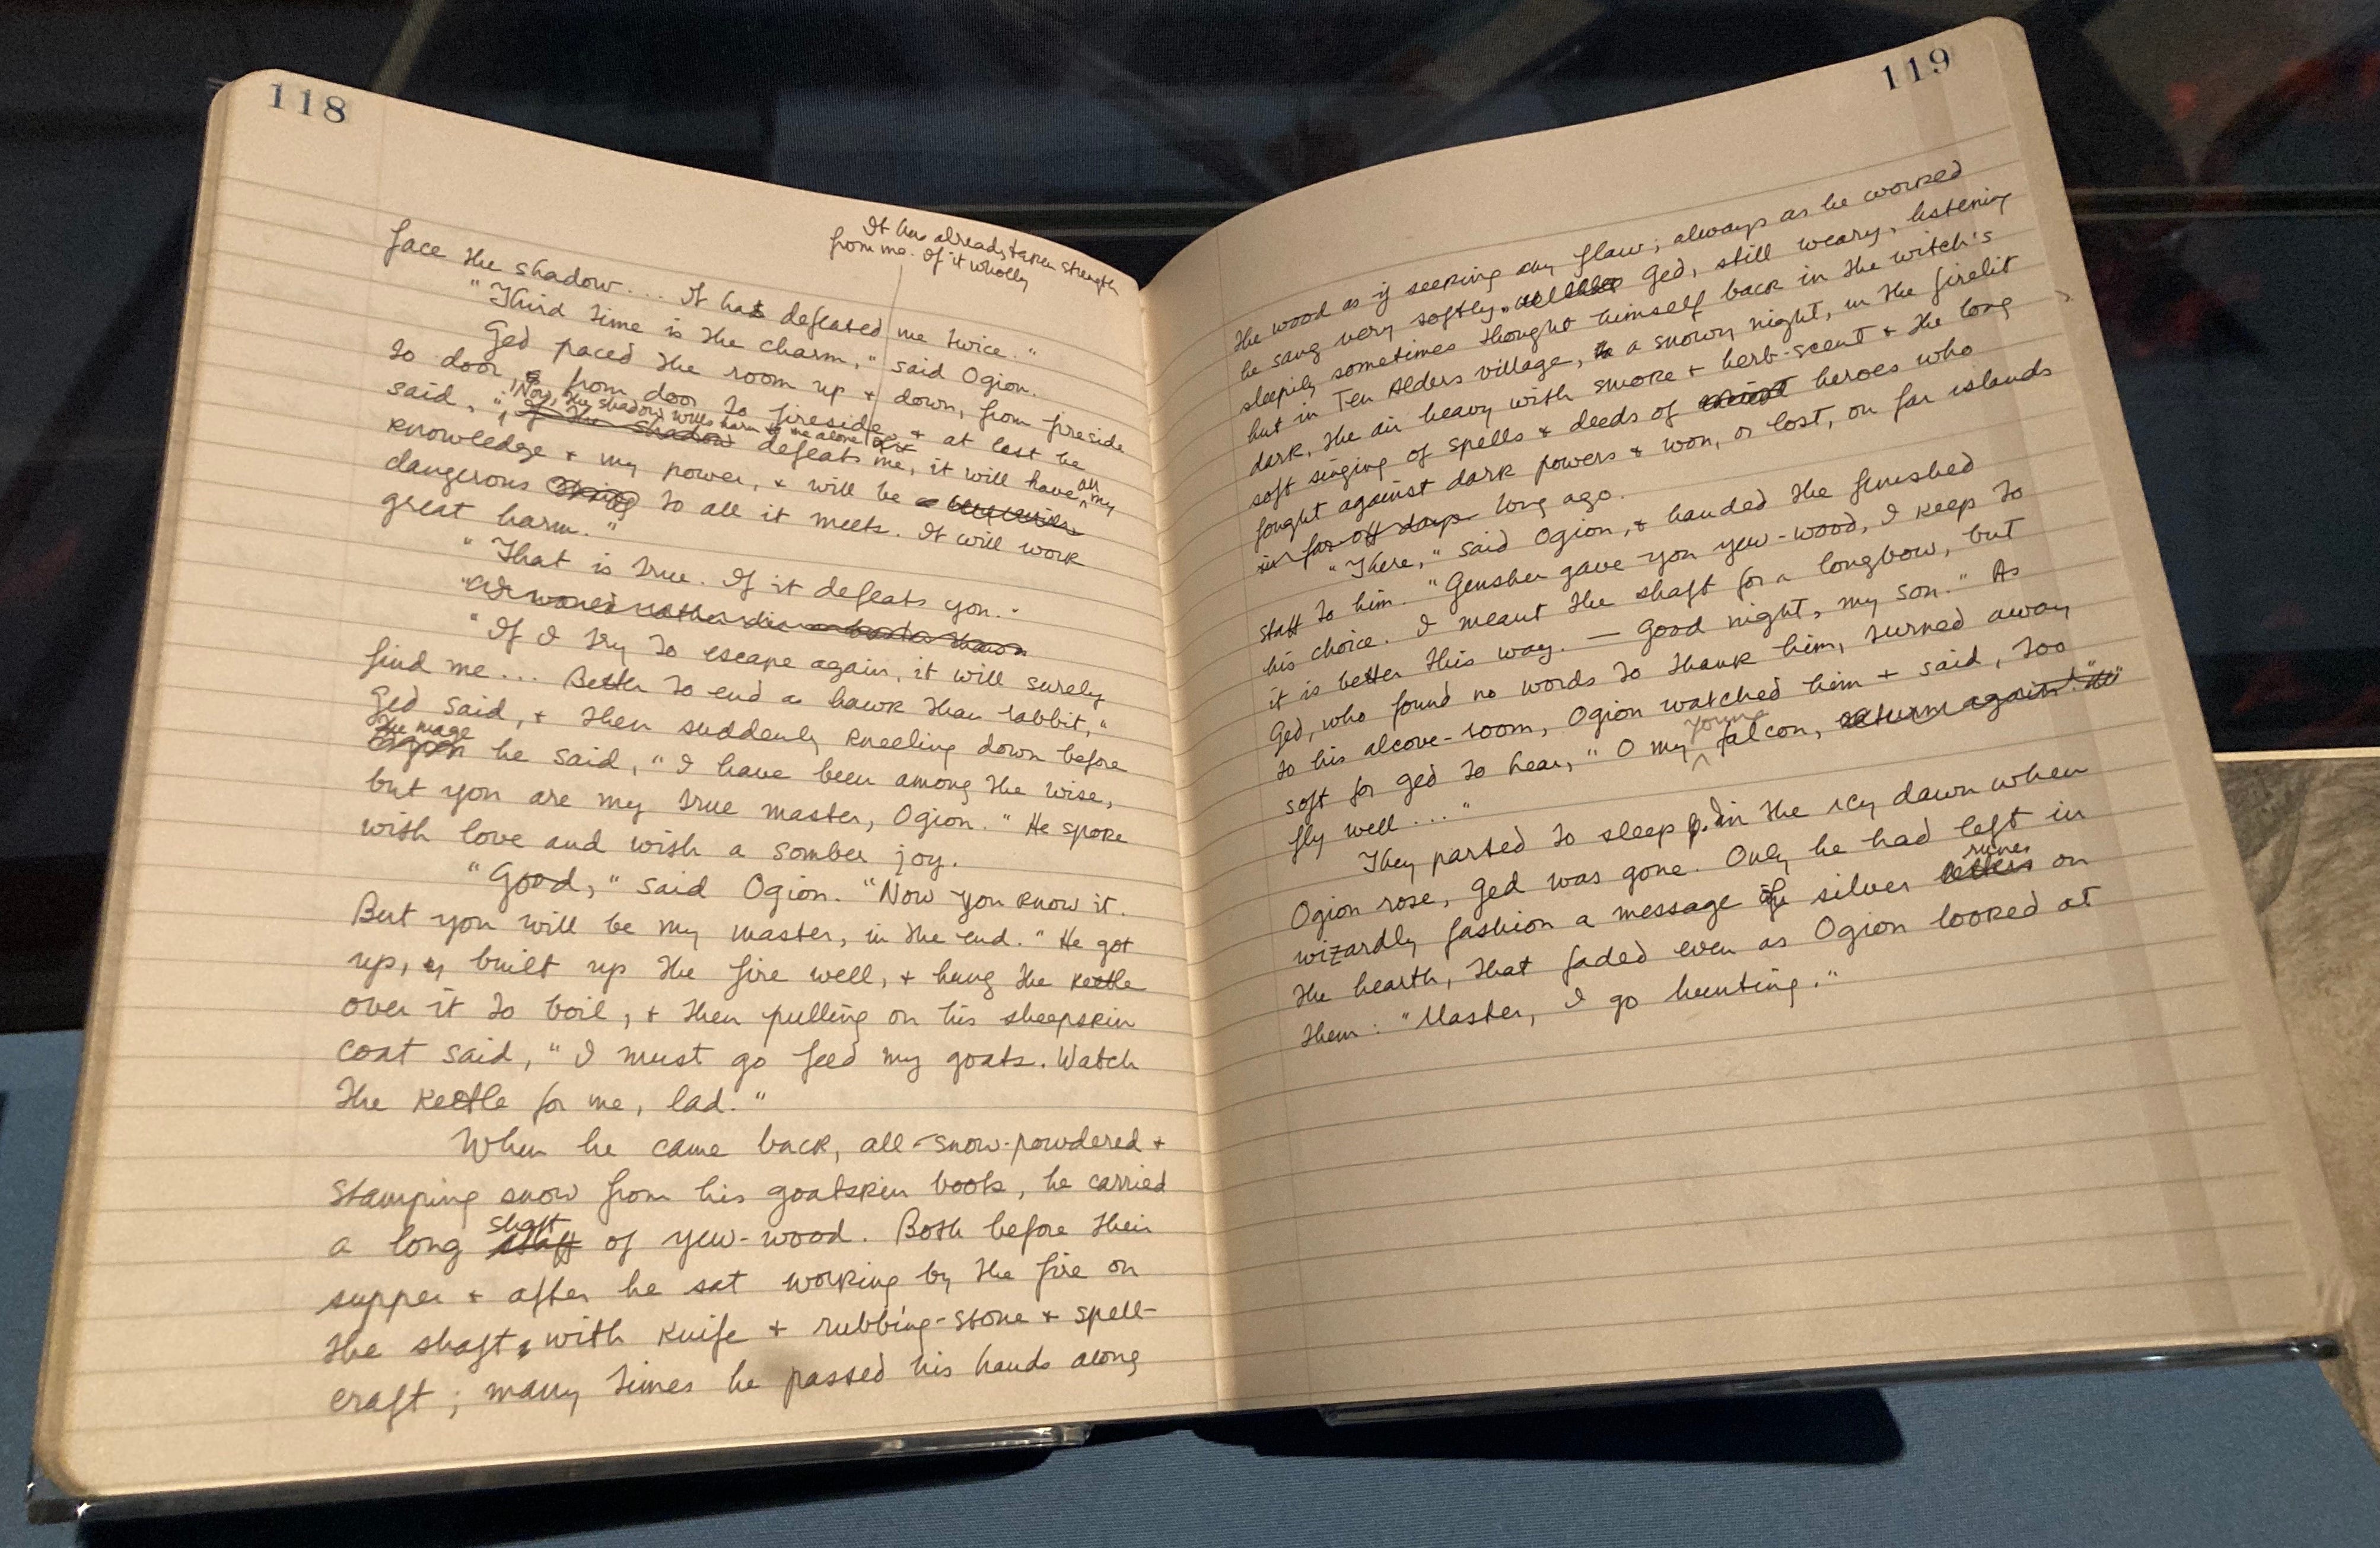 118
It has already taken strength
from me. If it wholly
face the shadow.... It has defeated me twice."
"Third time is the charm," said Ogion.
Ged paced the room up + down, from fireside
to door, from door to fireside, + at last he
Now, the shadow will harm me alone. But
said, "If the shadow defeats me, it will have all my
knowledge + my power, + will be
dangerous thing to all it meets. It will work
great harm."
"That is true. If it defeats you."
"If I try to escape again, it will surely
find me... Better to end a hawk than rabbit,"
Ged said, + then suddenly kneeling down before
the mage
Ogion he said, "I have been among the wise,
but you are my true master, Ogion." He spoke
with love and with a somber joy.
"Good," said Ogion. "Now you know it.
But you will be my master, in the end." He got
up, built up the fire well, + hung the kettle
over it to boil, + then pulling on his sheepskin
coat said, "I must go feed my goats. Watch
the kettle for me, lad."
When he came back, all snow-powdered +
stamping snow from his goatskin boots, he carried
shaft
a long staff of yew-wood. Both before their
supper + after he sat working by the fire on
the shaft, with knife + rubbing-stone + spell-
craft; many times he passed his hands along
119
the wood as if seeking any flaw; always as he worked
he sang very softly. Ged, still weary, listening
sleepily sometimes thought himself back in the witch's
hut in Ten Alders village, a snowy night, in the firelit
dark, the air heavy with smoke + herb-scent + the long
soft singing of spells + deeds of heroes who
fought against dark powers + won, or lost, on far islands
in far-off days long ago.
"There," said Ogion, + handed the finished
staff to him. "Gensher gave you yew-wood, I keep to
his choice. I meant the shaft for a longbow, but
it is better this way. — Good night, my son." As
Ged, who found no words to thank him, turned away
to his alcove-room, Ogion watched him + said, too
young
soft for Ged to hear, "O my falcon, return again."
fly well..."
They parted to sleep. In the icy dawn when
Ogion rose, Ged was gone. Only he had left in
runes
wizardly fashion a message of silver letters on
the hearth, that faded even as Ogion looked at
them: "Master, I go hunting."